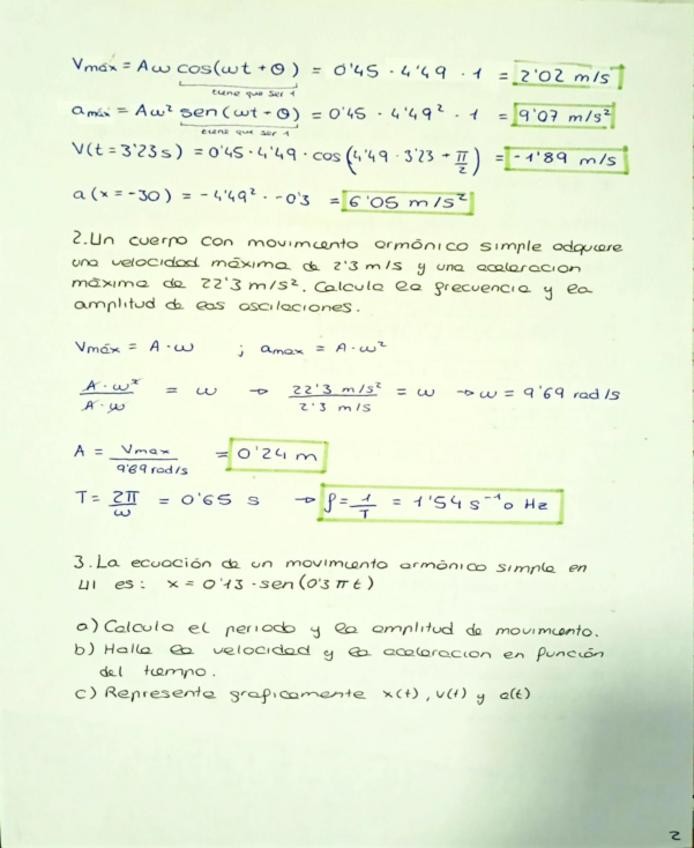 Vmáx = Aω cos(ωt + Θ) = 0'45 · 4'49 · 1 = 2'02 m/s
tiene que ser 1
amáx = Aω² sen(ωt + Θ) = 0'45 · 4'49² · 1 = 9'07 m/s²
tiene que ser 1
V(t = 3'23 s) = 0'45 · 4'49 · cos(4'49 · 3'23 + π/2) = -1'89 m/s
a(x = -30) = -4'49² · -0'3 = 6'05 m/s²
2. Un cuerpo con movimiento armónico simple adquiere
una velocidad máxima de 2'3 m/s y una aceleracion
máxima de 22'3 m/s². Calcula la frecuencia y la
amplitud de las oscilaciones.
Vmáx = A · ω ; amax = A · ω²
A · ω² / A · ω = ω → 22'3 m/s² / 2'3 m/s = ω → ω = 9'69 rad/s
A = Vmax / 9'69 rad/s = 0'24 m
T = 2π/ω = 0'65 s → f = 1/T = 1'54 s⁻¹ o Hz
3. La ecuación de un movimiento armónico simple en
UI es: x = 0'13 · sen(0'3 π t)
a) Calcula el periodo y la amplitud de movimiento.
b) Halla la velocidad y la aceleracion en función
del tiempo.
c) Representa graficamente x(t), v(t) y a(t)
2